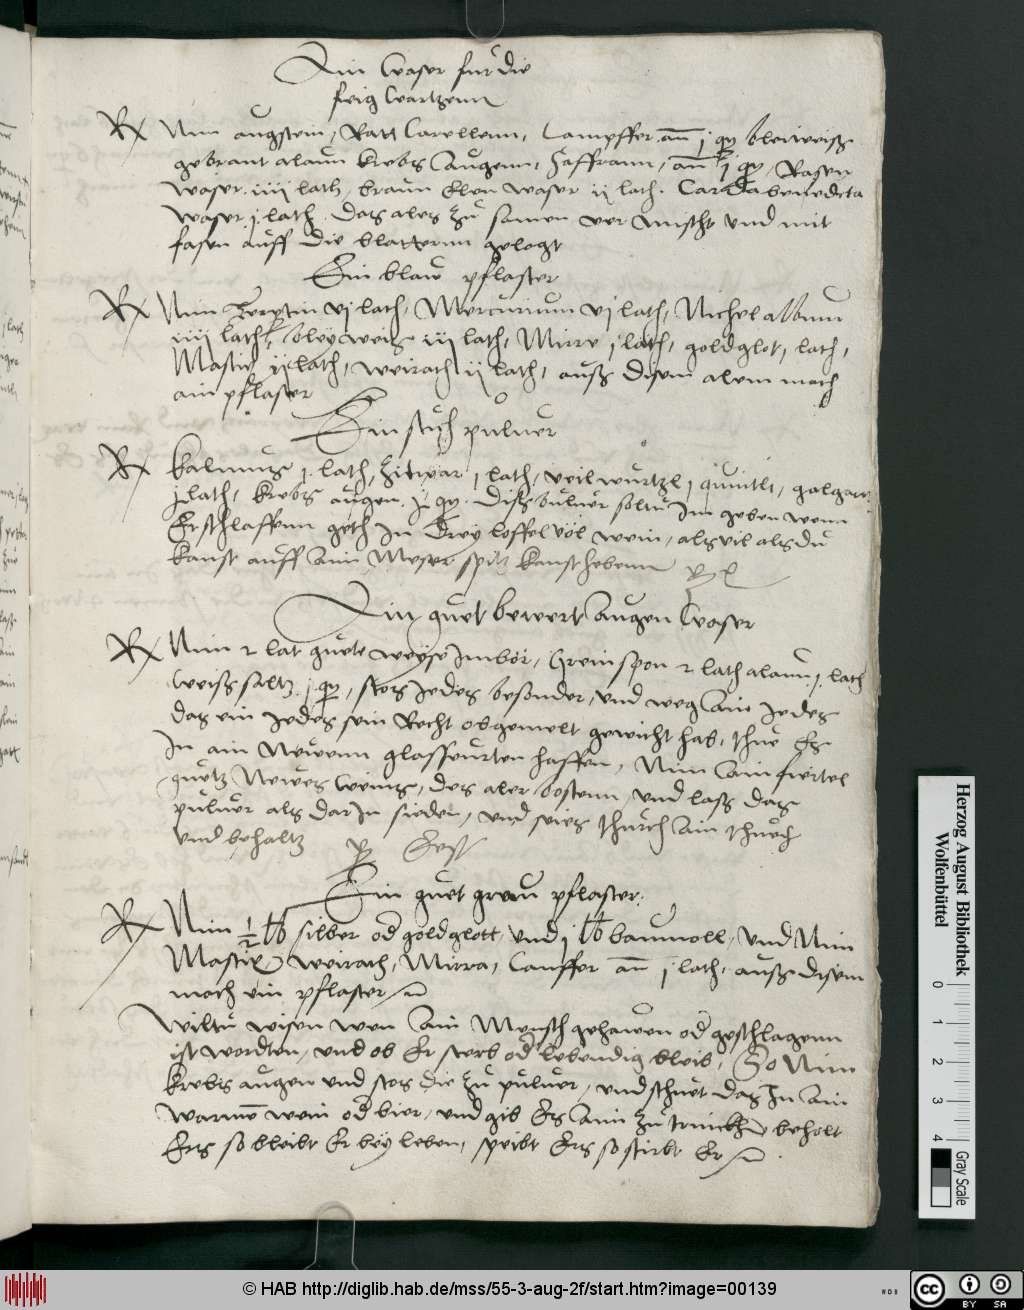 Ain Waser fur die
feig Wartzenn
Rx Nim augstein, Ratt Carellenn, Campffer an j qz bleiweiß
gebrant alaun krebs Augenn, Saffrann, an j qz, Rasen
Waser iiij lath, braun Elen waser ij lath. Carda benedicta
Waser j lath. das ales zu samen ver mischt und mit
fasen auff die blatternn gelegt
Ein blaw pflaster
Rx Nim Terpetin vj lath, Mercurium vj lath, Nichel album
iiij lath, bleyweis iij lath, Mirre j lath, goldglet j lath,
Mastix ij lath, weirach ij lath, auß disem alem mach
ain pflaster
Ein stich puluer
Rx Kalmus j lath, zitwar j lath, veilwurtzl j quintli, galgan
j lath, krebs augen j qz. diß buluer soltu Im geben wenn
Er schlaffenn geth In drey loffel vol wein, als vil als du
kanst auff ain Meser spitz kanst hebenn
Ain guet bewert Augen Waser
Rx Nim 2 lat guete weyse Imber, Greinspon 2 lath alaun j lath
Weiß saltz j qz, stos Jedes besonder, und weg Ain Jedes
das ein Jedes sein Recht obgemelt gewicht hab, thue Es
In ain Newenn glassurten haffen, Nim Ain fiertel
guetz Newes Weins, des aler bestenn, und laß das
puluer als dar In sieden, und seies thurch Ain thuech
und behaltz
Ein guet grau pflaster
Rx Nim ½ lb silber od goldglett, und j lb baumoll, und Nim
Mastix weirach, Mirra, Campffer an j lath, auß disem
mach ein pflaster
Wiltu wisen wen Ain Mensch gehawen od geschlagenn
ist wordten, und ob Er sterb od lebendig bleib, So Nim
krebs augen und stos die zu puluer, und schuet das In ain
warme wein od bier, und gib Es Aim zu trinckh behalt
Ers so bleibt Er bey leben, speibt Ers so stirbt Er
Herzog August Bibliothek
Wolfenbüttel
0 1 2 3 4
Gray Scale
© HAB http://diglib.hab.de/mss/55-3-aug-2f/start.htm?image=00139
cc BY SA